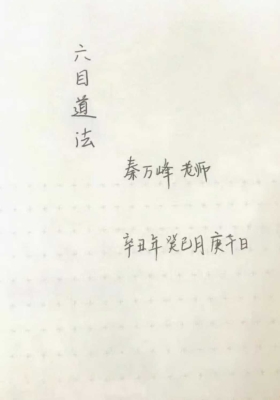 六目道法
秦万峰老师
辛丑年癸巳月庚午日